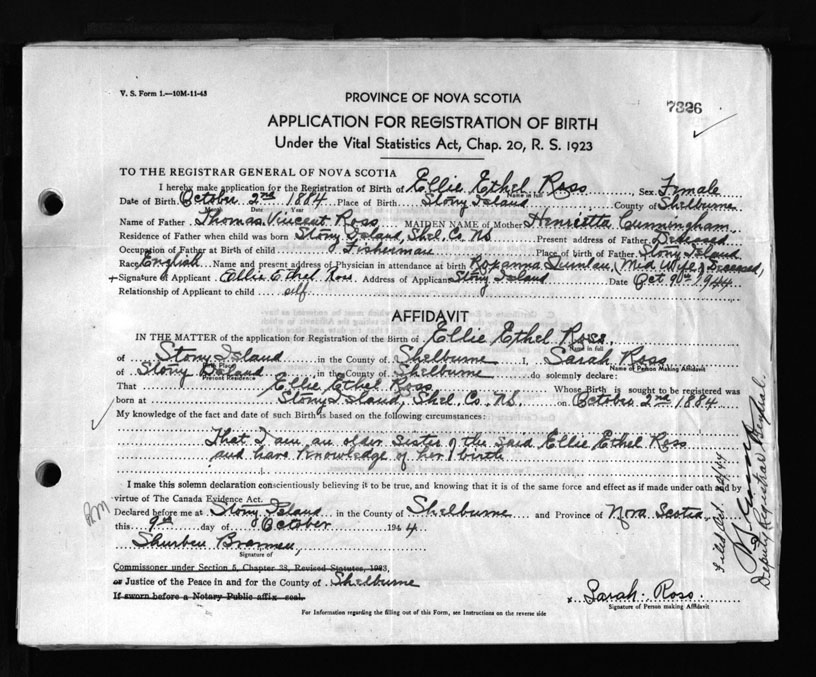 V. S. Form 1.—10M-11-43
PROVINCE OF NOVA SCOTIA
7326
APPLICATION FOR REGISTRATION OF BIRTH
Under the Vital Statistics Act, Chap. 20, R. S. 1923
TO THE REGISTRAR GENERAL OF NOVA SCOTIA
I hereby make application for the Registration of Birth of Ellie Ethel Ross, Sex Female
Name in full
Date of Birth October 2nd 1884 Place of Birth Stony Island County of Shelburne
Month Date Year
Name of Father Thomas Vincent Ross MAIDEN NAME of Mother Henrietta Cunningham
Residence of Father when child was born Stony Island, Shel. Co. NS. Present address of Father Deceased
Occupation of Father at Birth of child Fisherman Place of birth of Father Stony Island
Race English Name and present address of Physician in attendance at birth Rozanna Quinlan, (Mid Wife) Deceased,
Signature of Applicant Ellie Ethel Ross Address of Applicant Stony Island Date Oct 9th 1944
Relationship of Applicant to child self
AFFIDAVIT
IN THE MATTER of the application for Registration of the Birth of Ellie Ethel Ross,
Name in full
of Stony Island in the County of Shelburne I, Sarah Ross
Birth Place Name of Person Making Affidavit
of Stony Island in the County of Shelburne do solemnly declare:
Present Residence
That Ellie Ethel Ross Whose Birth is sought to be registered was
born at Stony Island, Shel. Co. NS. on October 2nd 1884
My knowledge of the fact and date of such Birth is based on the following circumstances:
That I am an older Sister of the said Ellie Ethel Ross
and have knowledge of her birth
I make this solemn declaration conscientiously believing it to be true, and knowing that it is of the same force and effect as if made under oath and by
virtue of The Canada Evidence Act.
Declared before me at Stony Island in the County of Shelburne and Province of Nova Scotia,
this 9th day of October 1944
Signature of
Commissioner under Section 5, Chapter 38, Revised Statutes, 1923,
or Justice of the Peace in and for the County of Shelburne
If sworn before a Notary Public affix seal.
Sarah Ross
Signature of Person making Affidavit
For Information regarding the filling out of this Form, see Instructions on the reverse side
Deputy Registrar General.